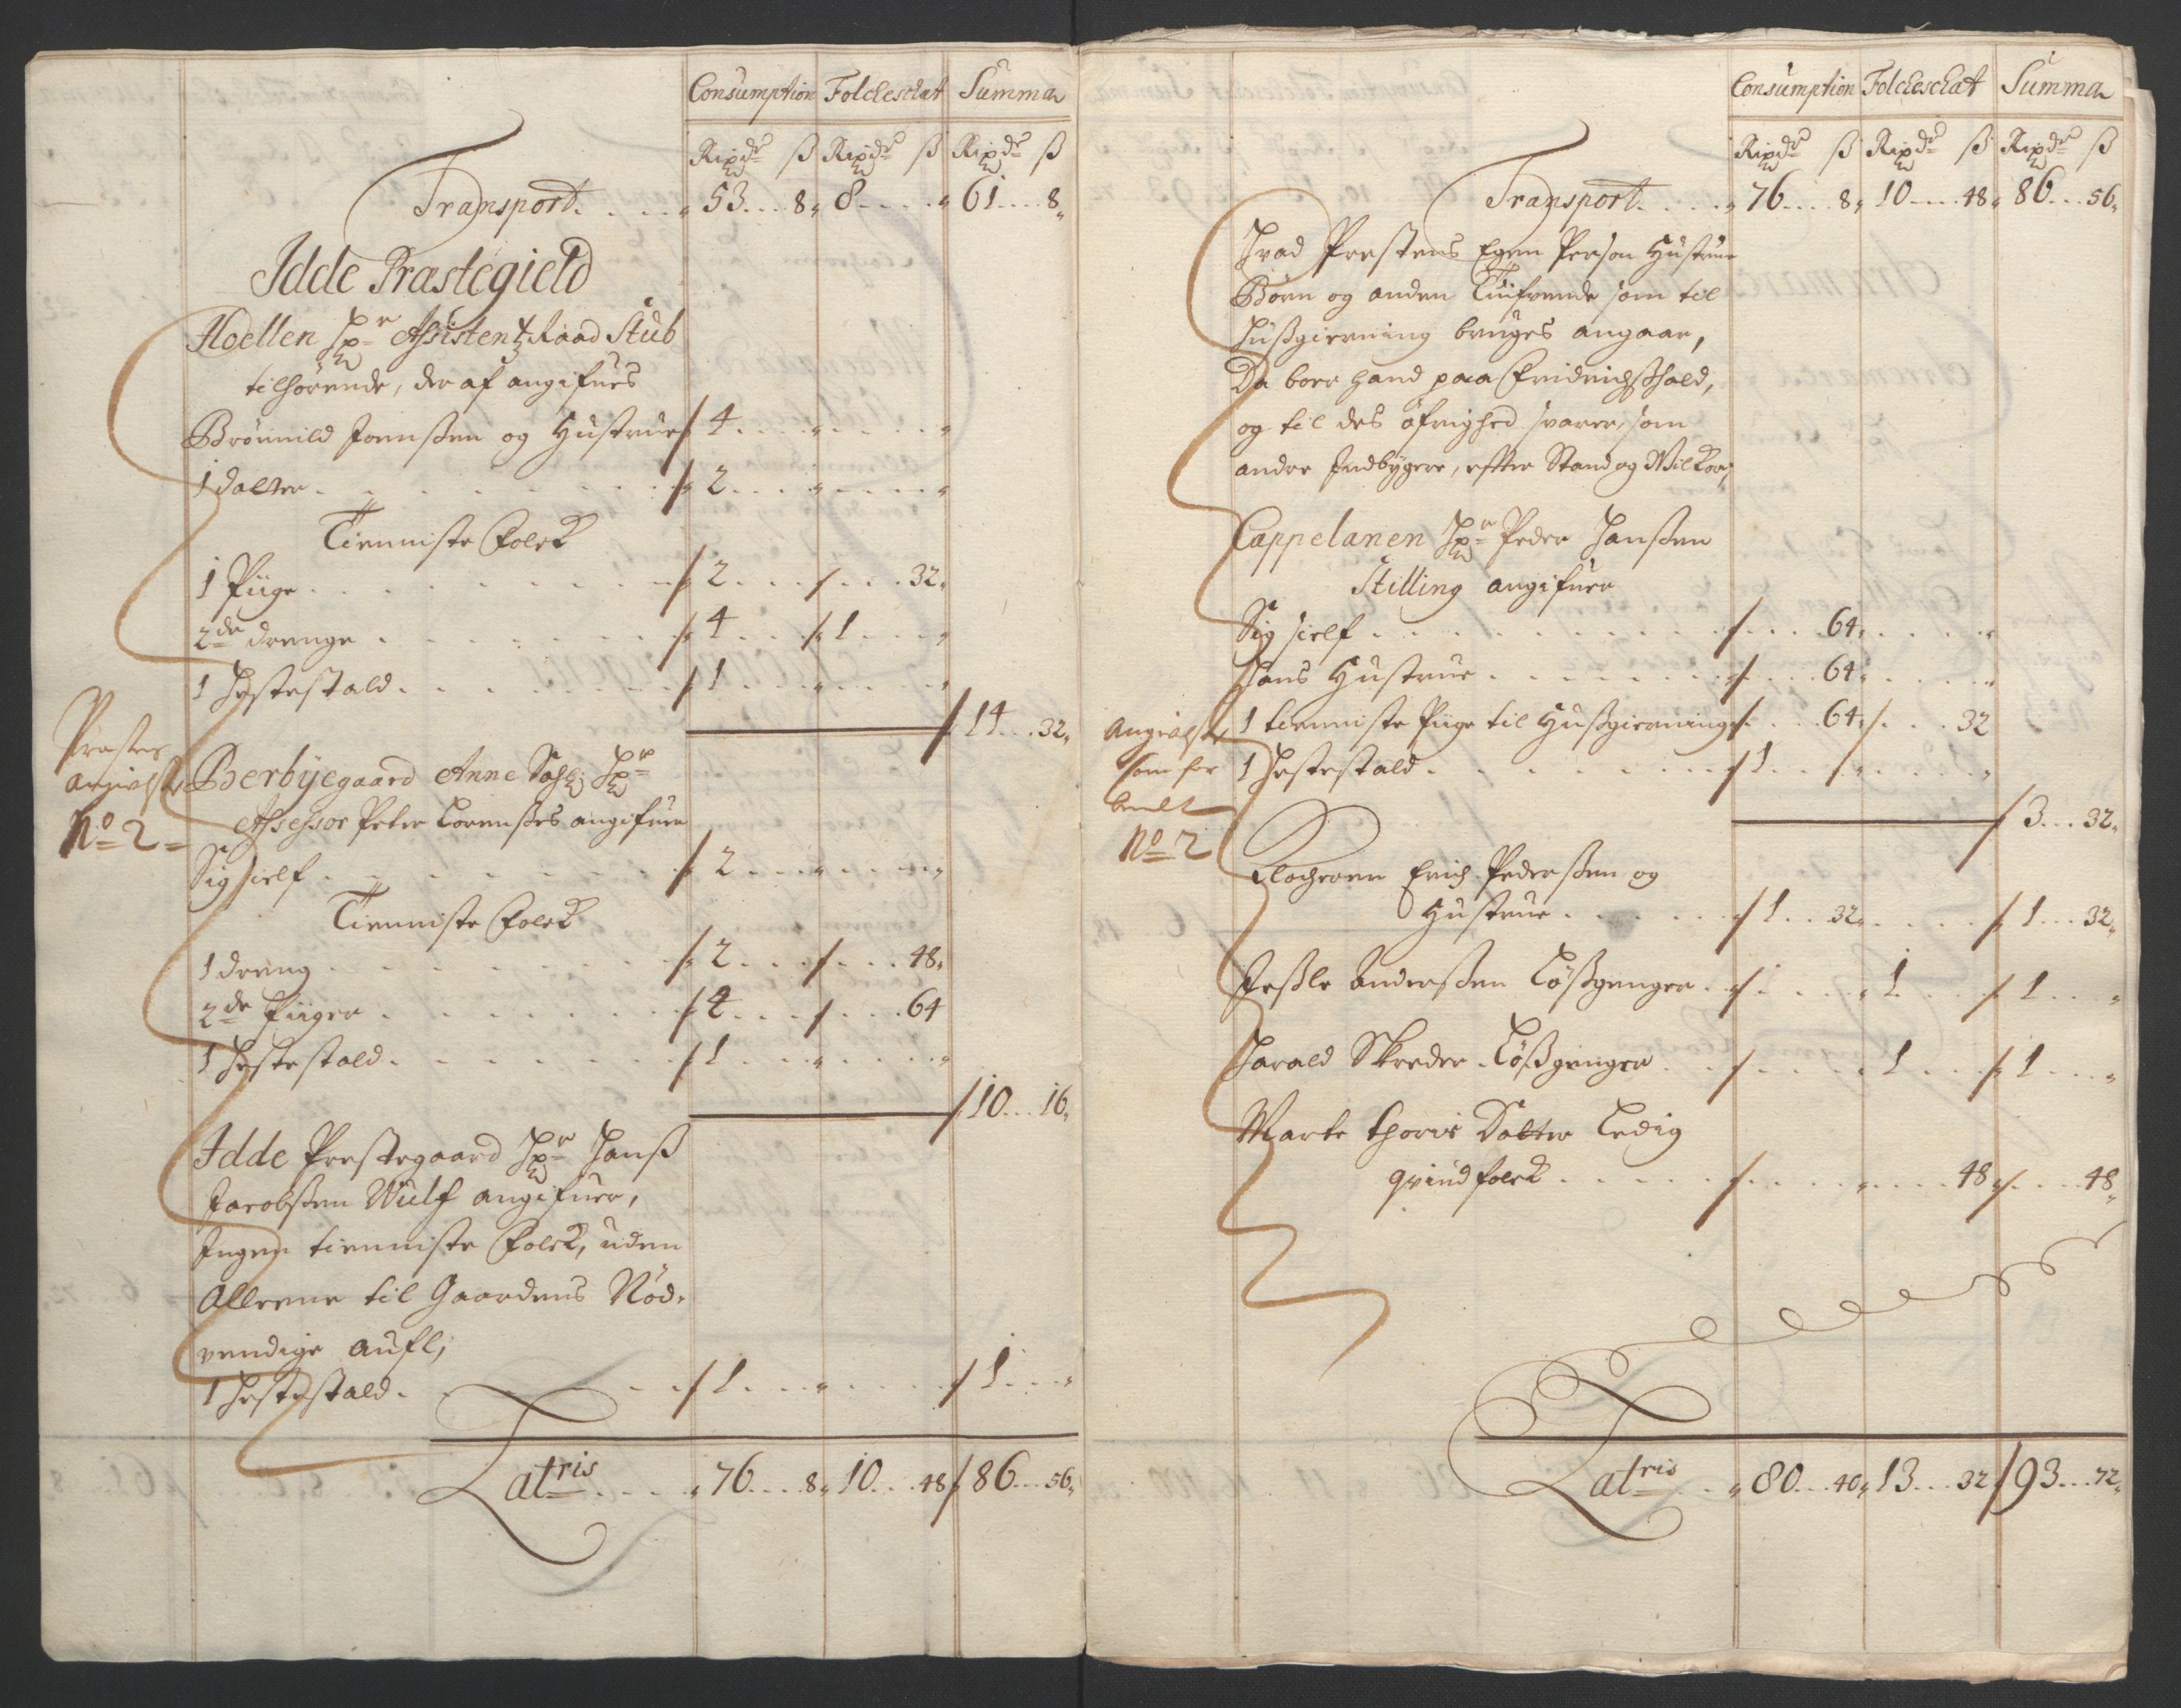 Consumption Folcheschat Summa
Rixdr ß Rixdr ß Rixdr ß
Transport. . . . 53 . . . 8 8 . . . . 61 . . . 8
Idde Præstegield
Hr Assistentz Raad Stub
tilhørende, der af angifues
Brönnild Joenßen og Hustrue 4 . . . .
1 datter . . . . 2 . . . .
Tienniste Folck
1 Piige . . . . 2 . . . . 32
2de drenge . . . . 4 . . . 1 . . .
1 Hestestald . . . . 1 . . . .
14 . . . 32
Prestens
angivelse
No 2
Berbyegaard Anne Sahl: Hr
Assessor Peter Lorenßes angifuer
Sig sielf . . . . 2 . . . .
Tienniste Folck
1 dreng . . . . 2 . . . . 48
2de Piiger . . . . 4 . . . . 64
1 Hestestald . . . . 1 . . . .
10 . . . 16
Idde Prestegaard Hr Hanß
Jacobßen Wulf angifuer,
Ingen tienniste Folck, uden
Alleene til Gaardens Nød-
vendige aufl;
1 Hestestald . . . . 1 . . . . 1 . . .
Latris . . . . 76 . . . 8 10 . . . 48 86 . . . 56
Consumption Folcheschat Summa
Rixdr ß Rixdr ß Rixdr ß
Transport . . . . 76 . . . 8 10 . . . 48 86 . . . 56
Hvad Prestens Egen Person Hustrue
Börn og anden som til
Hußgierning bruges angaar,
Da boer hand paa Fridrichßhald,
og til des öfrighed svarer, som
andre Indbygere, effter Stand og Wilkor,
Cappelanen Hr Peder Hanßen
Stilling angifuer
Sig sielf . . . . 64 . . . .
Hans Hustrue . . . . 64 . . . .
1 tienniste Piige til Hußgierning . . . 64 . . . 32
1 Hestestald . . . . 1 . . . .
3 . . . 32
Angivelse
som for
No 2
Clocheren Erich Pederßen og
Hustrue . . . . 1 . . 32 . . . . 1 . . . 32
Anderßen Lößgenger . . . . 1 . . . 1 . . .
Harald Skreder Lößgenger . . . . 1 . . . 1 . . .
Marte Thoris Datter Ledig
qvindfolck . . . . 48 . . . 48
Latris . . 80 . . . 40 13 . . . 32 93 . . . 72